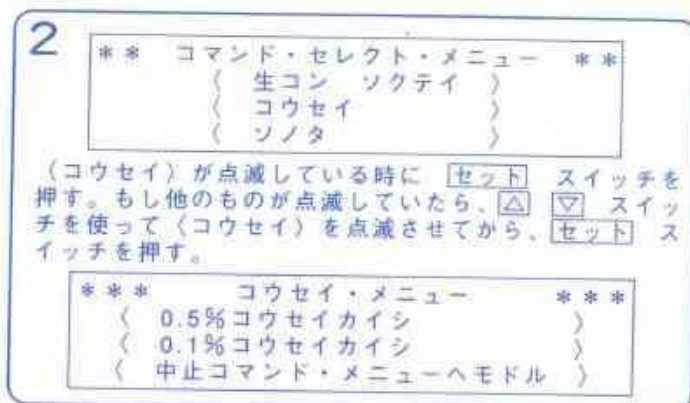 2
** コマンド・セレクト・メニュー **
〈 生コン ソクテイ 〉
〈 コウセイ 〉
〈 ソノタ 〉
〈コウセイ〉が点滅している時に セット スイッチを
押す。もし他のものが点滅していたら、△ ▽ スイッ
チを使って〈コウセイ〉を点滅させてから、セット ス
イッチを押す。
*** コウセイ・メニュー ***
〈 0.5%コウセイカイシ 〉
〈 0.1%コウセイカイシ 〉
〈 中止コマンド・メニューヘモドル 〉